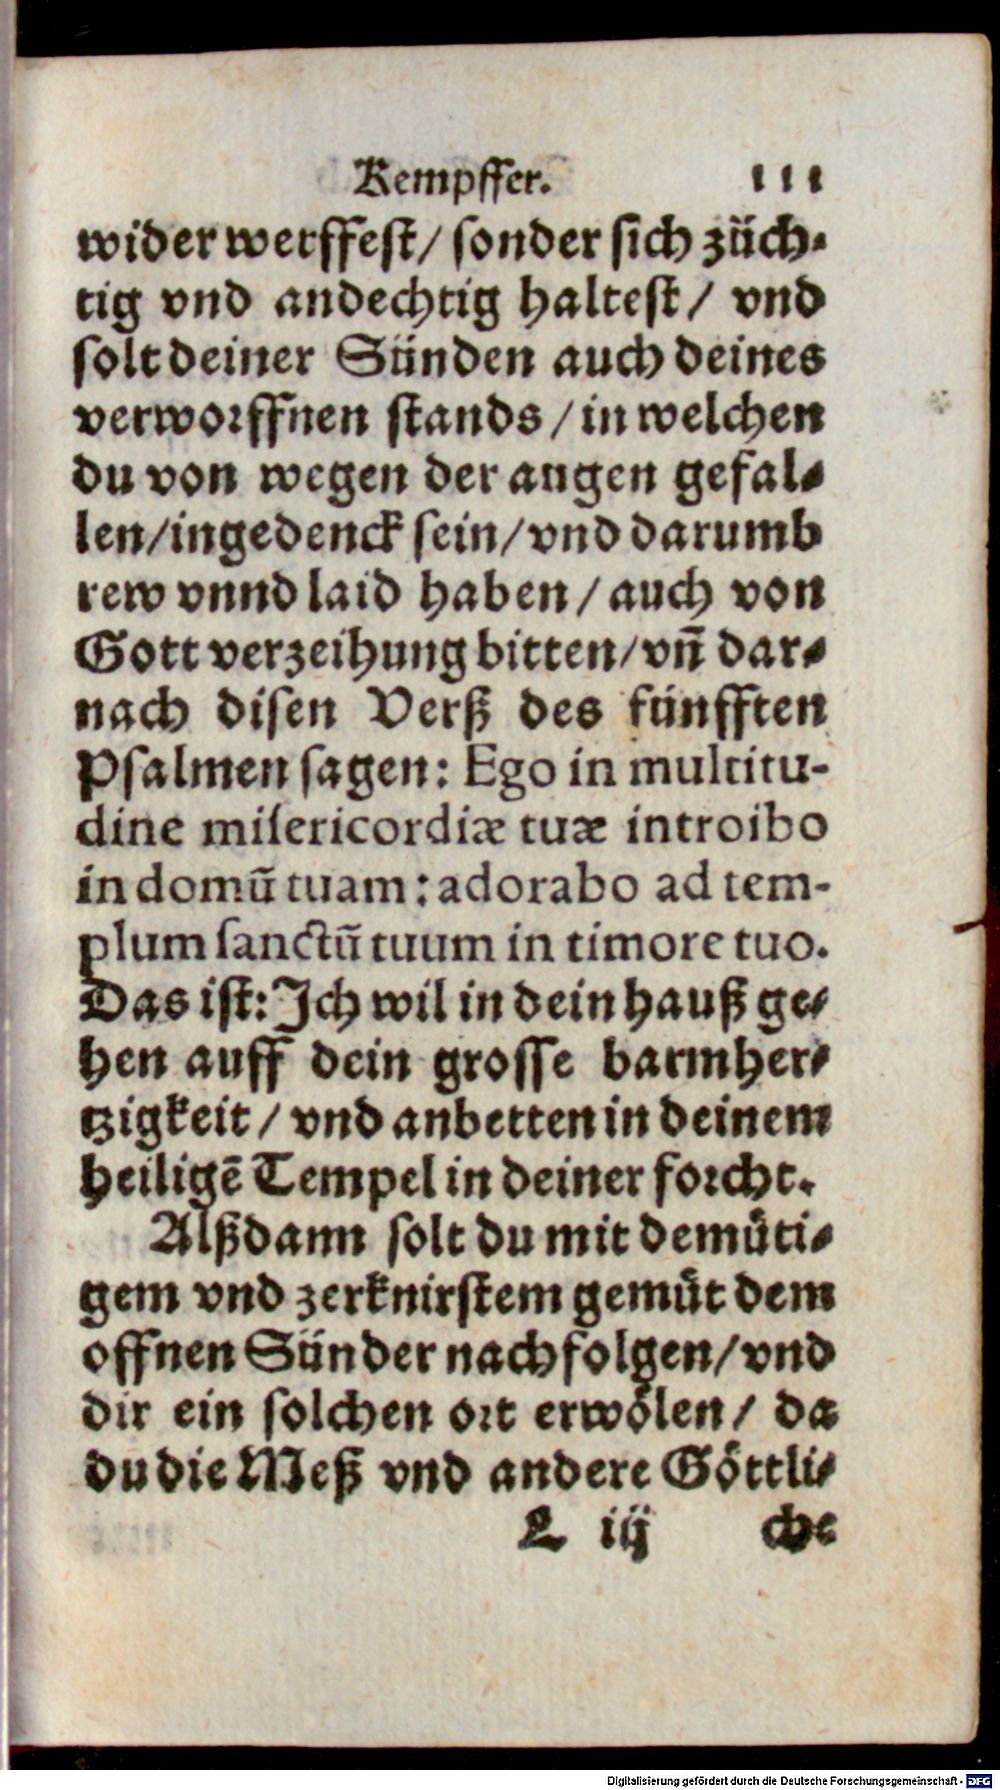 Kempffer. 111
wider werffest/ sonder sich züch-
tig vnd andechtig haltest/ vnd
solt deiner Sünden auch deines
verworffnen stands/ in welchen
du von wegen der augen gefal-
len/ingedenck sein/vnd darumb
rew vnnd laid haben/ auch von
Gott verzeihung bitten/vñ dar-
nach disen Verß des fünfften
Psalmen sagen: Ego in multitu-
dine misericordiæ tuæ introibo
in domũ tuam: adorabo ad tem-
plum sanctũ tuum in timore tuo.
Das ist: Ich wil in dein hauß ge-
hen auff dein grosse barmher-
tzigkeit/ vnd anbetten in deinem
heiligẽ Tempel in deiner forcht.
Alßdann solt du mit demüti-
gem vnd zerknirstem gemüt dem
offnen Sünder nachfolgen/vnd
dir ein solchen ort erwölen/ da
du die Meß vnd andere Göttli-
L iij che
Digitalisierung gefördert durch die Deutsche Forschungsgemeinschaft - DFG